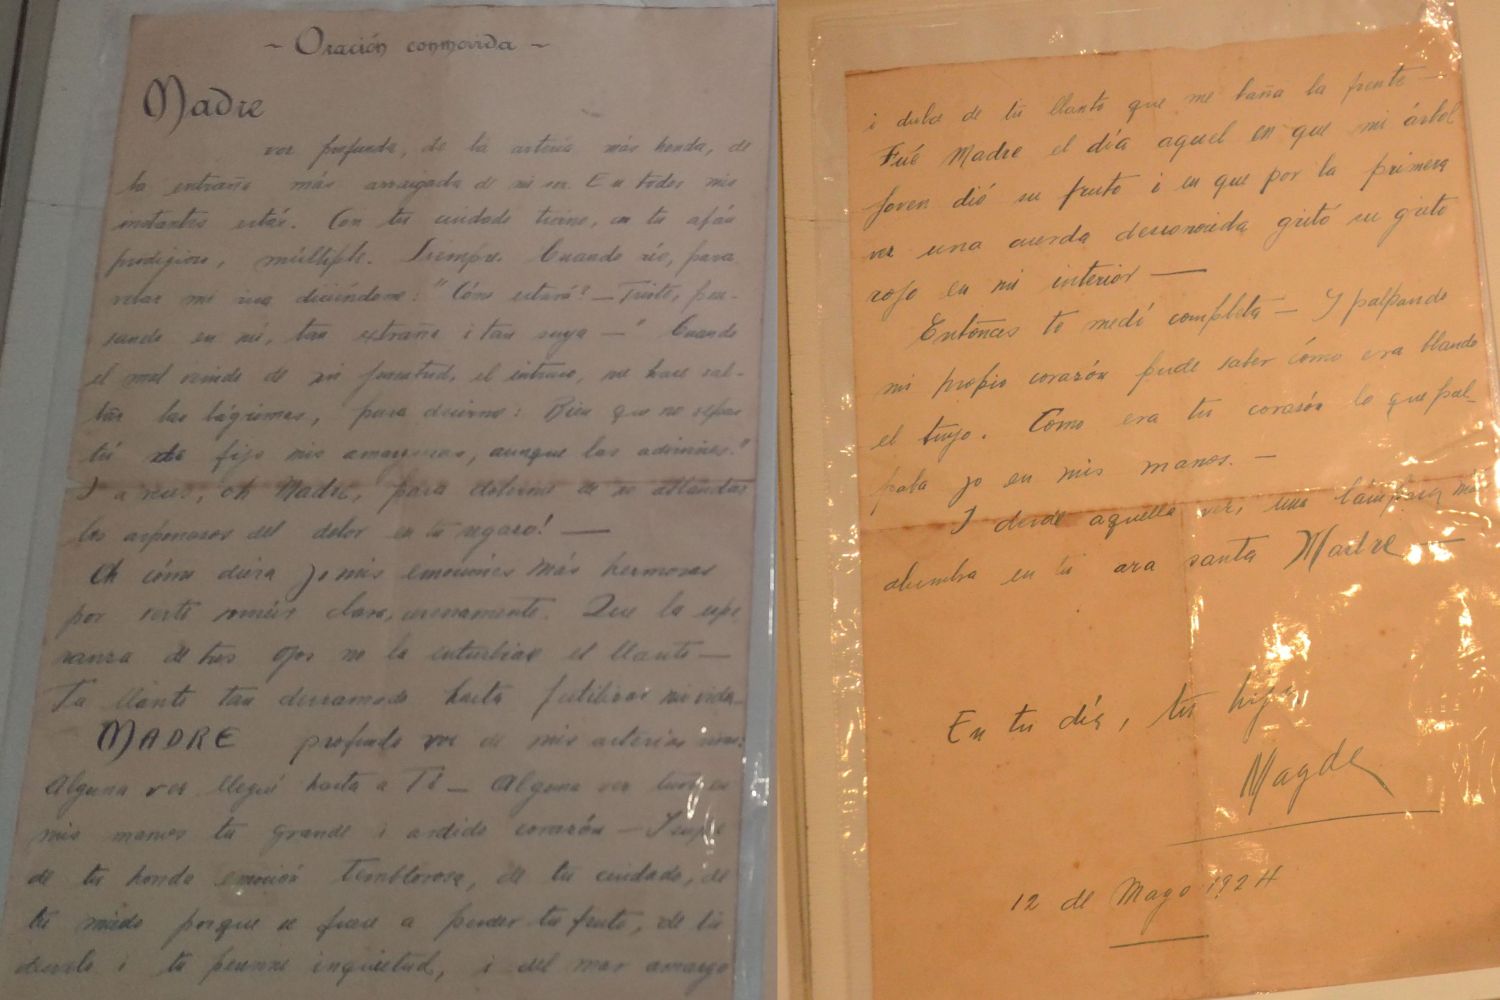 ~ Oración conmovida ~
Madre
voz profunda, de la arteria más honda, de
la entraña más arraigada de mi ser. En todos mis
instantes estás. Con tu cuidado tierno, en tu afán
prodigioso, múltiple. Siempre. Cuando río, para
velar mi risa diciéndome: "Cómo estará? — Triste, pen-
sando en mí, tan extraña i tan suya —" Cuando
el mal reinde de mi juventud, el intruso, me hace sal-
tar las lágrimas, para decirme: Bien que no sepas
tú de fijo mis amarguras, aunque las adivines."
I a veces, oh Madre, para dolerme de no ablandar
los arponazos del dolor en tu regazo! —
Oh cómo diera yo mis emociones más hermosas
por verte sonreír clara, serenamente. Que la espe
ranza de tus ojos no la enturbiase el llanto —
Tu llanto tan derramado hasta fertilizar mi vida—
MADRE profunda voz de mis arterias
Alguna vez llegué hasta a Tí — Alguna vez tuve en
mis manos tu grande i ardido corazón — I supe
de tu honda emoción temblorosa, de tu cuidado, de
tu miedo porque se fuese a perder tu fruto, de tu
desvelo i tu perenne inquietud, i del mar amargo
i dulce de tu llanto que me baña la frente —
Fué Madre el día aquel en que mi árbol
joven dió su fruto i en que por la primera
vez una cuerda desconocida gritó su grito
rojo en mi interior —
Entonces te medí completa — I palpando
mi propio corazón pude saber cómo era blando
el tuyo. Cómo era tu corazón lo que pal-
paba yo en mis manos. —
I desde aquella vez, una lámpara más
alumbra en tu ara santa Madre —
En tu día, tu hija,
Magda
12 de Mayo 1924